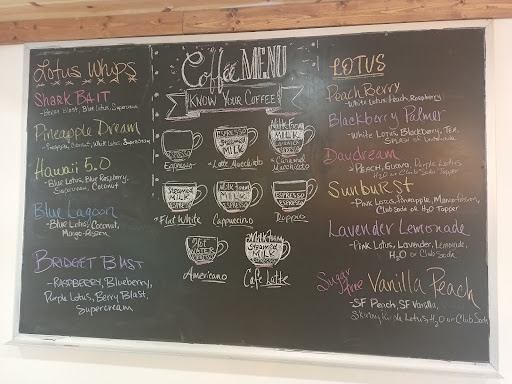 Lotus Whips
Shark Bait
- Blue Lotus, Supercream
Pineapple Dream
- Pineapple, Coconut, White Lotus, Supercream
Hawaii 5.0
- Blue Lotus, Blue Raspberry,
Supercream, Coconut
Blue Lagoon
- Blue Lotus, Coconut,
Mango-Passion
Bridget Blast
- Raspberry, Blueberry,
Purple Lotus, Berry Blast,
Supercream
Coffee MENU
KNOW YOUR COFFEE
ESPRESSO
STEAMED
MILK
MILK Foam
MILK
Espresso
Latte Macchiato
Caramel
Macchiato
STEAMED
MILK
ESPRESSO
MILK Foam
STEAMED
MILK
ESPRESSO
ESPRESSO
ESPRESSO
Flat White
Cappuccino
Doppio
HOT
WATER
MILK Foam
STEAMED
MILK
Americano
Cafe Latte
LOTUS
Peach Berry
- White Lotus, Peach, Raspberry
Blackberry Palmer
- White Lotus, Blackberry, Tea,
Splash of Lemonade
Daydream
- Peach, Guava, Purple Lotus
H2O or Club Soda
Sunburst
- Pink Lotus, Pineapple, Mango-Passion,
Club Soda or H2O Topper
Lavender Lemonade
- Pink Lotus, Lavender, Lemonade,
H2O or Club Soda
Sugar Free Vanilla Peach
- SF Peach, SF Vanilla,
Skinny Pink Lotus, H2O or Club Soda